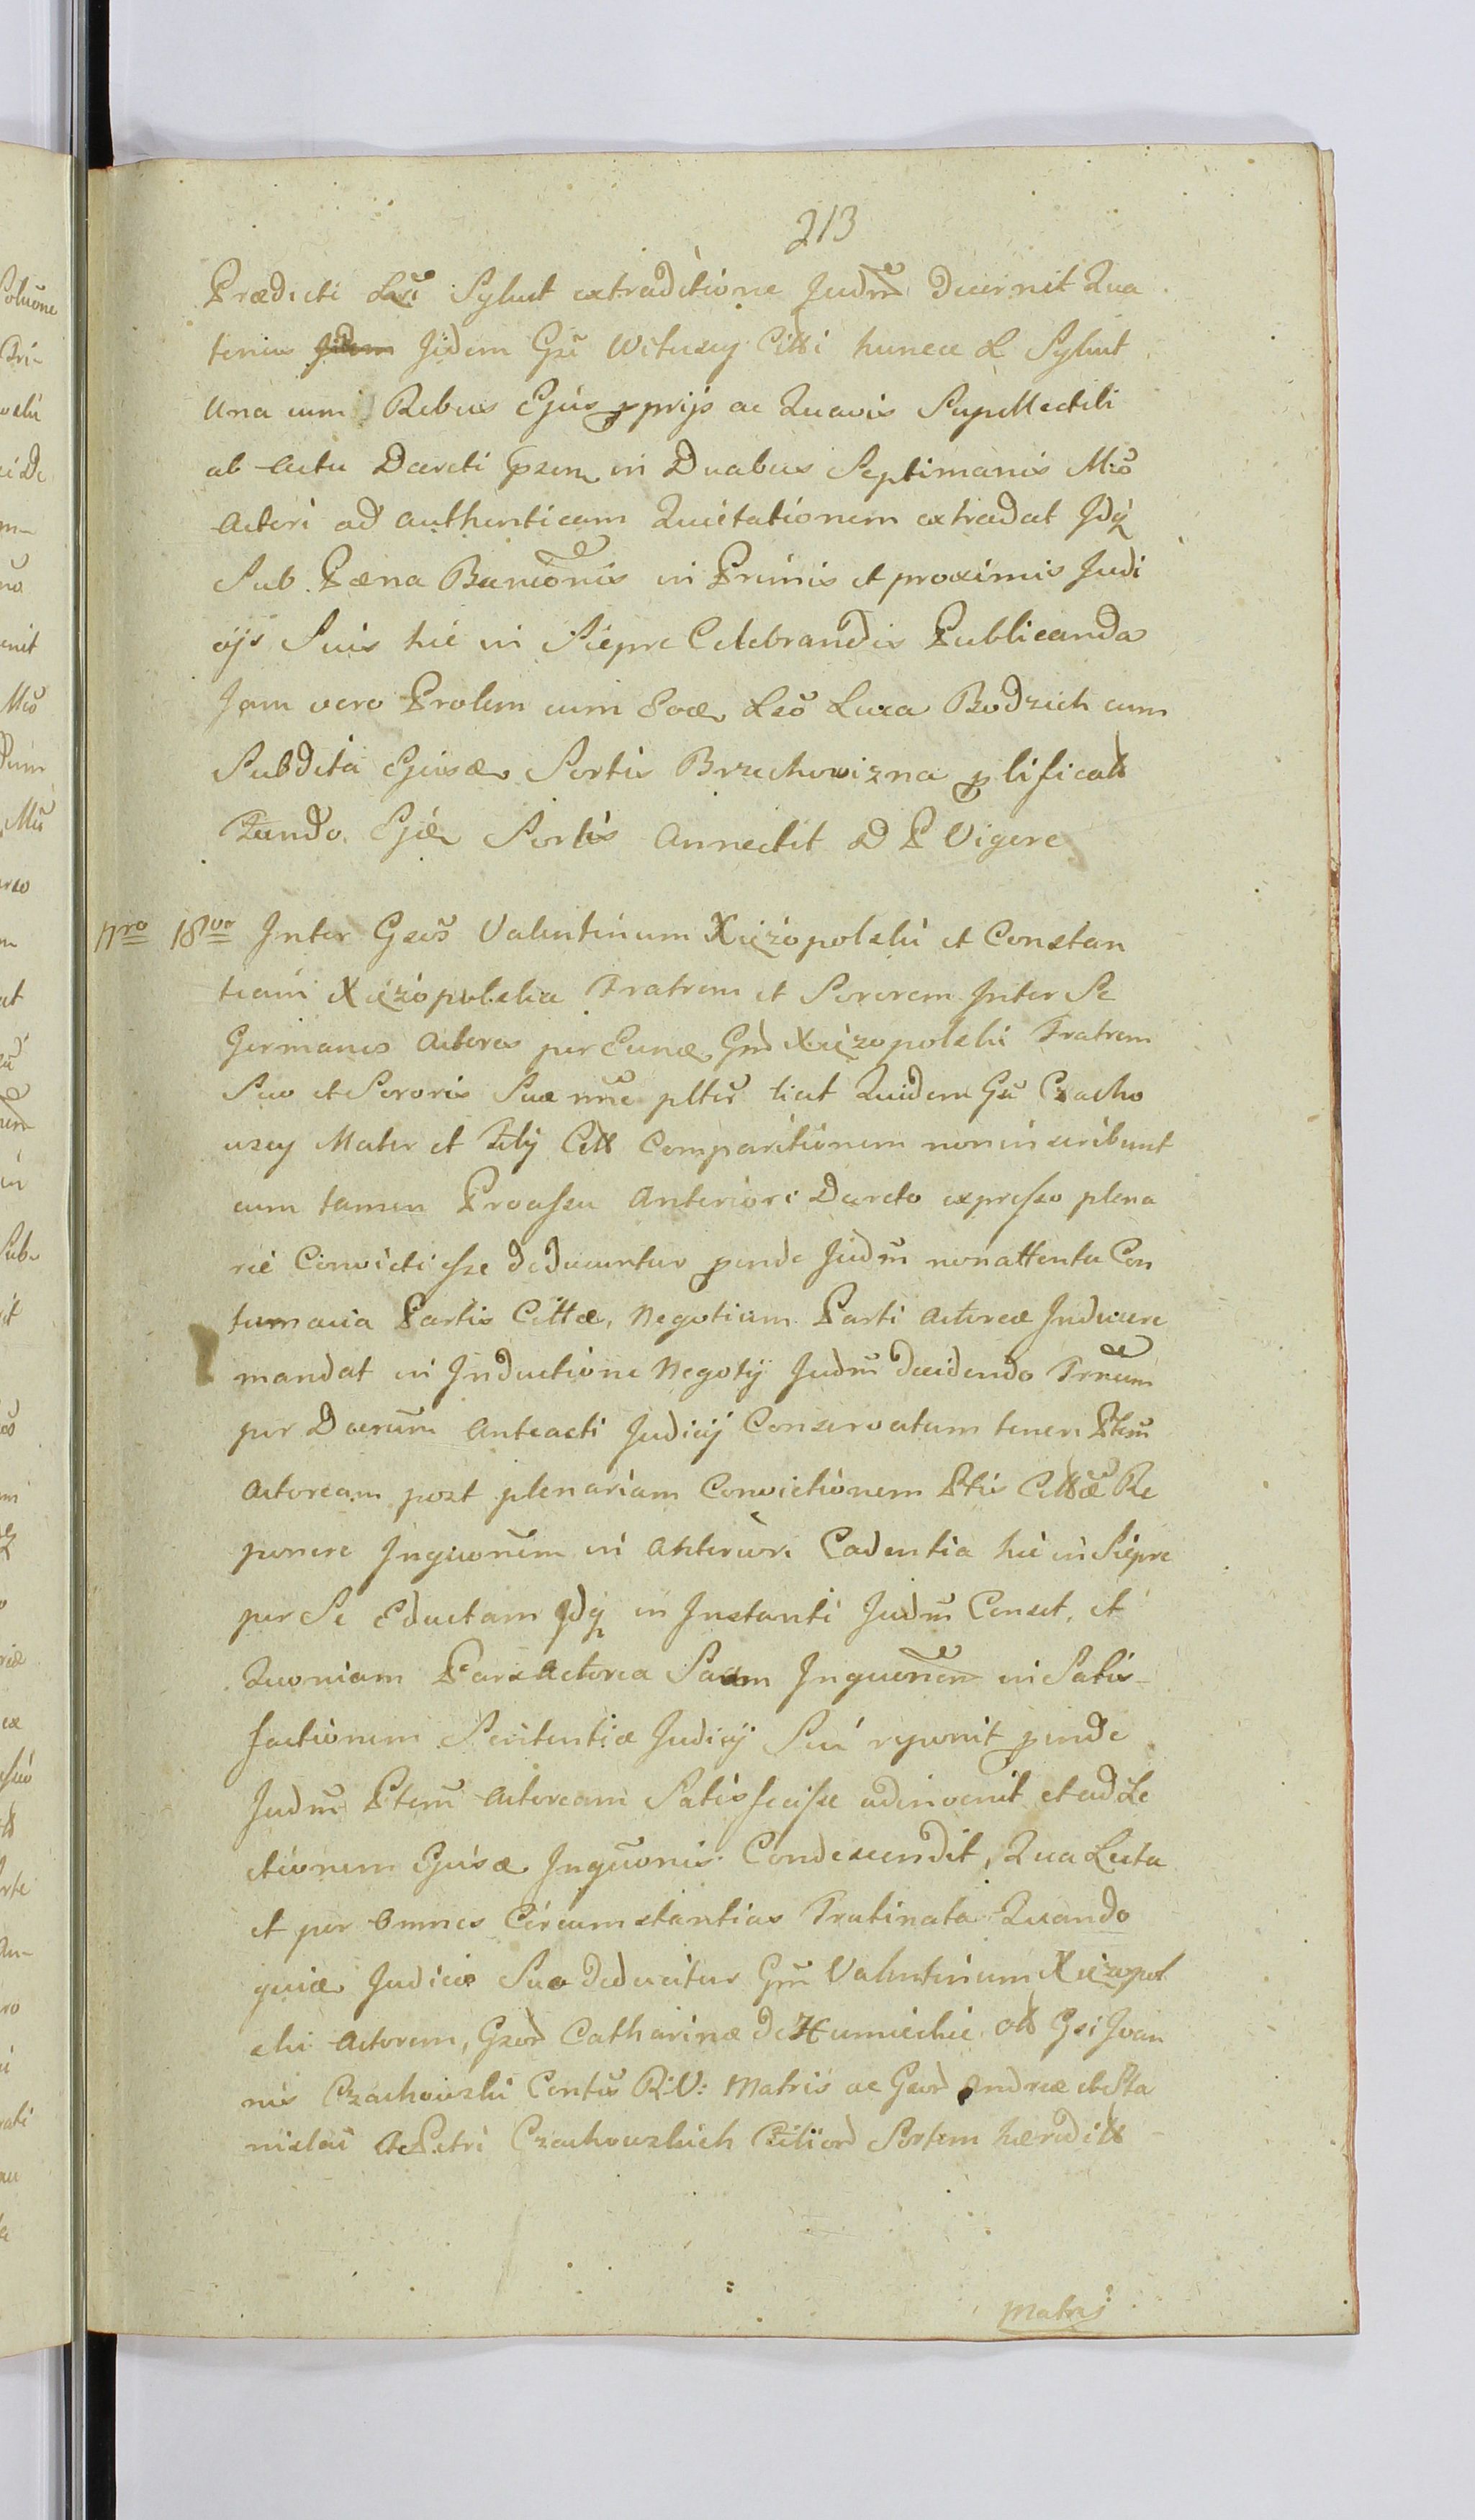 213
Prædicti Lři Sylwt extraditione Judm̃ Decernit Qua
tenus Jidem Gsi Witusey Citti huncce L Sylwt
Una cum Rebus Ejus pprijs ac Quavis Supellectili
ab Actu Dccreti psen in Duabus Septimanis Mřo
Actori ad authenticam Quietationem extradat Jdq
Sub Pæna Banionis in Primis et proximis Judi
cijs Suis hic in Sierpc Celebrandis Publicanda
Jam vero Prolem cum Eodæ Lřo Luca Bodzich cum
Subdita Ejusdæ Sortis Brzechowizna plificatt
Fundo Ejdæ Sortis annectit D P Vigore
nro 18vo Inter Gsos Valentinum Xiężopolski et Constan
tiam Xiężopolska Fratrem et Sororem Inter Se
Germanos Actores per Eundæ Gnd Xiężopolski Fratrem
Suo et Sororis Suæ nñe pltes licet Quidem Gsi Czacho
wscy Mater et Filij Citt Comparitionem non inscribunt
cum tamen Processu Anteriori Decreto expresso plena
rie Convicti esse deducuntur pinde Judm̃ non attenta Con
tumacia Partis Cittæ, Negotium Parti Actoreæ Inducere
mandat in Inductione Negotij Judm̃ Decidendo Trñum
per Decrum̃ Anteacti Judicij Conservatum teneri Ptem̃
Actoream post plenariam Convictionem Ptis Cittæ Re
ponere Inquonem̃ in Anteriori Cadentia hic in Sierpc
per Se Eductam Jdq in Instanti Judm̃ Censet, et
Quoniam Pars Actorea Suam Inquonem in Satis-
factionem Sententiæ Judicij Sui reponit pinde
Judm̃ Ptem̃ Actoream Satisfecisse adinvenit et ad Le
ctionem Ejusdæ Inquonis Condescendit, Qua Lecta
et per Omnes Circumstantias Trutinata Quando
quidæ Judicio Suo Deducitur Gsm̃ Valentinum Xiężopol
ski Actorem, Gsor Catharinæ de Humieckie ott Gsi Joan
nis Czachowski Contis R: V: Matris ac Gsor Andreæ et Sta
nislai ac Petri Czachowskich Filior Sortem hæreditt
Matris